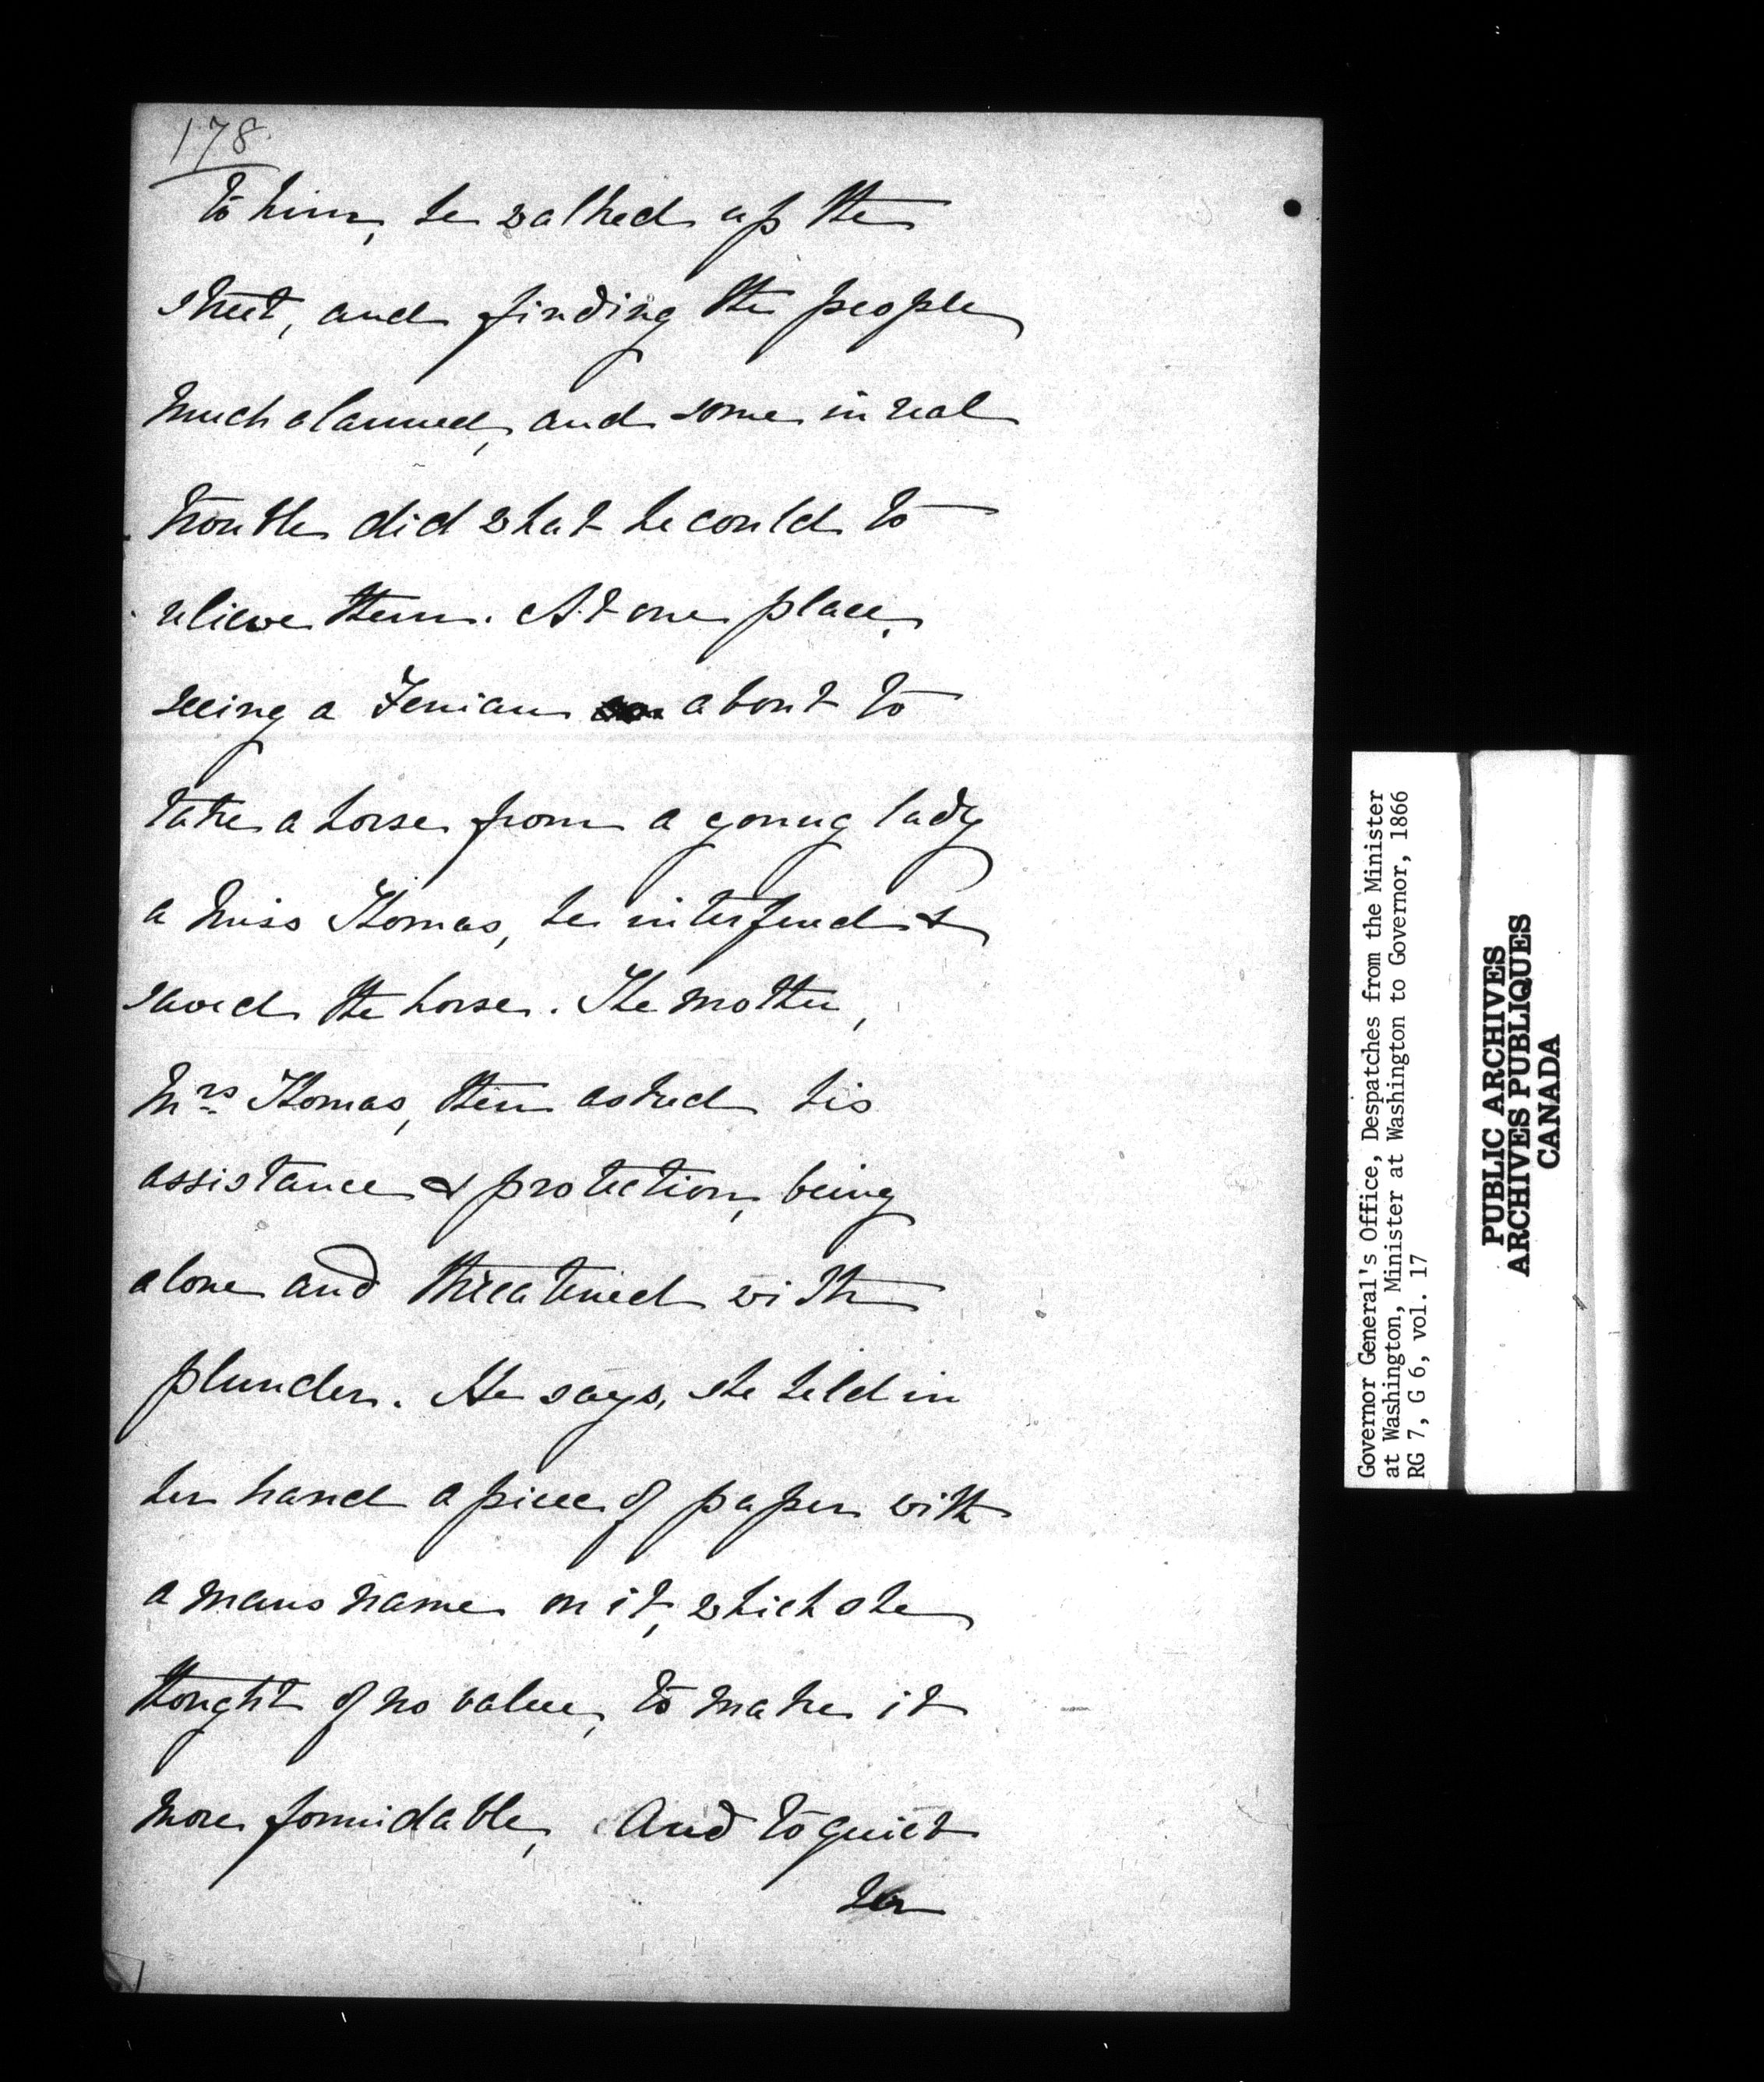 178
to him, he walked up the
street, and finding the people
much alarmed, and some in real
trouble did what he could to
relieve them. At one place,
seeing a Fenian about to
take a horse from a young lady
a Miss Thomas, he interfered &
saved the horse. The mother,
Mrs Thomas, then asked his
assistance & protection, being
alone and threatened with
plunder. He says, she held in
her hand a piece of paper with
a mans name on it, which she
thought of no value, to make it
more formidable, And to quiet
her
Governor General's Office, Despatches from the Minister
at Washington, Minister at Washington to Governor, 1866
RG 7, G 6, vol. 17
PUBLIC ARCHIVES
ARCHIVES PUBLIQUES
CANADA